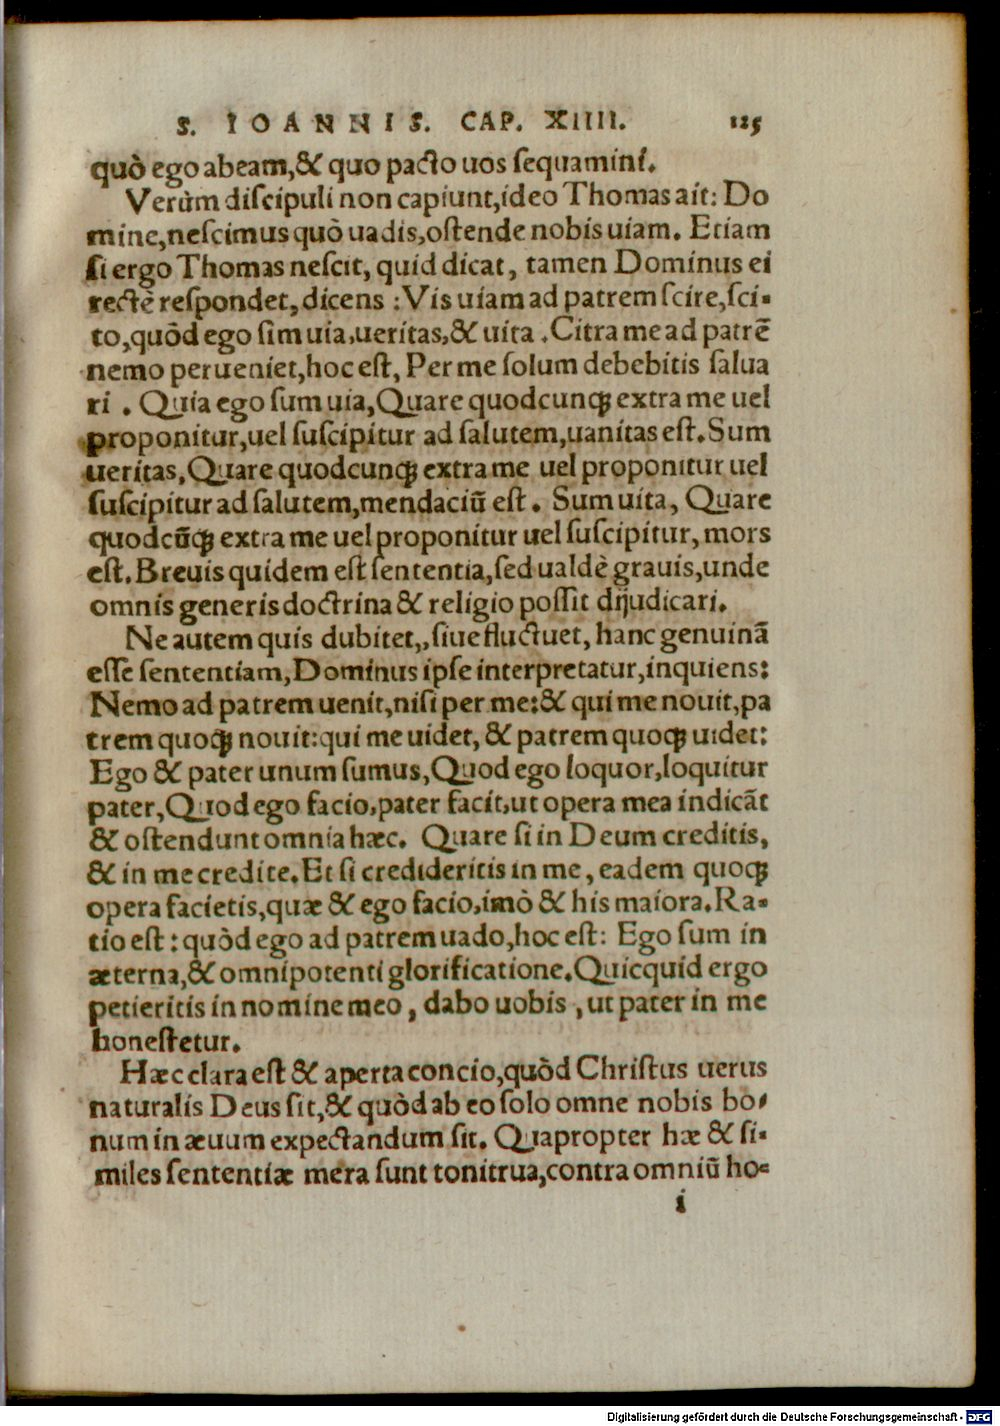 S. IOANNIS. CAP. XIIII. 125
quò ego abeam,& quo pacto uos sequamini.
Verùm discipuli non capiunt,ideo Thomas ait: Do
mine,nescimus quò uadis,ostende nobis uiam. Etiam
si ergo Thomas nescit, quid dicat, tamen Dominus ei
rectè respondet,dicens : Vis uiam ad patrem scire,sci-
to,quòd ego sim uia,ueritas,& uita .Citra me ad patrē
nemo perueniet,hoc est, Per me solum debebitis salua
ri . Quia ego sum uia,Quare quodcunqꝫ extra me uel
proponitur,uel suscipitur ad salutem,uanitas est.Sum
ueritas,Quare quodcunqꝫ extra me uel proponitur uel
suscipitur ad salutem,mendaciū est . Sum uita, Quare
quodcūqꝫ extra me uel proponitur uel suscipitur, mors
est.Breuis quidem est sententia,sed ualdè grauis,unde
omnis generis doctrina & religio possit dijudicari.
Ne autem quis dubitet,,siue fluctuet, hanc genuinā
esse sententiam,Dominus ipse interpretatur,inquiens:
Nemo ad patrem uenit,nisi per me:& qui me nouit,pa
trem quoqꝫ nouit:qui me uidet, & patrem quoqꝫ uidet:
Ego & pater unum sumus,Quod ego loquor,loquitur
pater,Quod ego facio,pater facit,ut opera mea indicāt
& ostendunt omnia hæc. Quare si in Deum creditis,
& in me credite.Et si credideritis in me, eadem quoqꝫ
opera facietis,quæ & ego facio,imò & his maiora.Ra-
tio est : quòd ego ad patrem uado,hoc est: Ego sum in
æterna,& omnipotenti glorificatione.Quicquid ergo
petieritis in nomine meo, dabo uobis ,ut pater in me
honestetur.
Hæc clara est & aperta concio,quòd Christus uerus
naturalis Deus sit,& quòd ab eo solo omne nobis bo-
num in æuum expectandum sit. Quapropter hæ & si-
miles sententiæ mera sunt tonitrua,contra omniū ho-
i
Digitalisierung gefördert durch die Deutsche Forschungsgemeinschaft - DFG